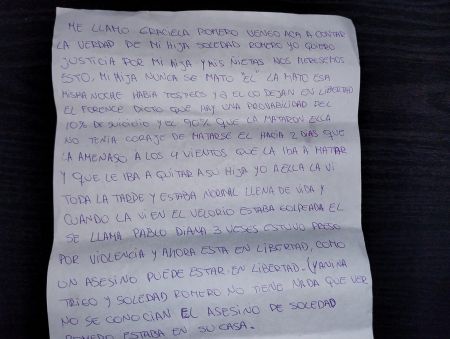 ME LLAMO GRACIELA ROMERO VENGO ACA A CONTAR
LA VERDAD DE MI HIJA SOLEDAD ROMERO YO QUIERO
JUSTICIA POR MI HIJA Y MIS NIETAS NOS MERESEMOS
ESTO. MI HIJA NUNCA SE MATO "EL" LA MATO ESA
MISMA NOCHE HABIA TESTIGOS Y A EL LO DEJAN EN LIBERTAD
EL FORENCE DICTO QUE HAY UNA PROVABILIDAD DEL
10% DE SUICIDIO Y EL 90% QUE LA MATARON ELLA
NO TENIA CORAJE DE MATARSE EL HACIA 2 DIAS QUE
LA AMENASO A LOS 4 VIENTOS QUE LA IBA A MATAR
Y QUE LE IBA A QUITAR A SU HIJA YO A ELLA LA VI
TODA LA TARDE Y ESTABA NORMAL LLENA DE VIDA Y
CUANDO LA VI EN EL VELORIO ESTABA GOLPEADA EL
SE LLAMA PABLO DIANA 3 VESES ESTUVO PRESO
POR VIOLENCIA Y AHORA ESTA EN LIBERTAD, COMO
UN ASESINO PUEDE ESTAR EN LIBERTAD. (YANINA
TRICO Y SOLEDAD ROMERO NO TIENE NADA QUE VER
NO SE CONOCIAN EL ASESINO DE SOLEDAD
ROMERO ESTABA EN SU CASA.